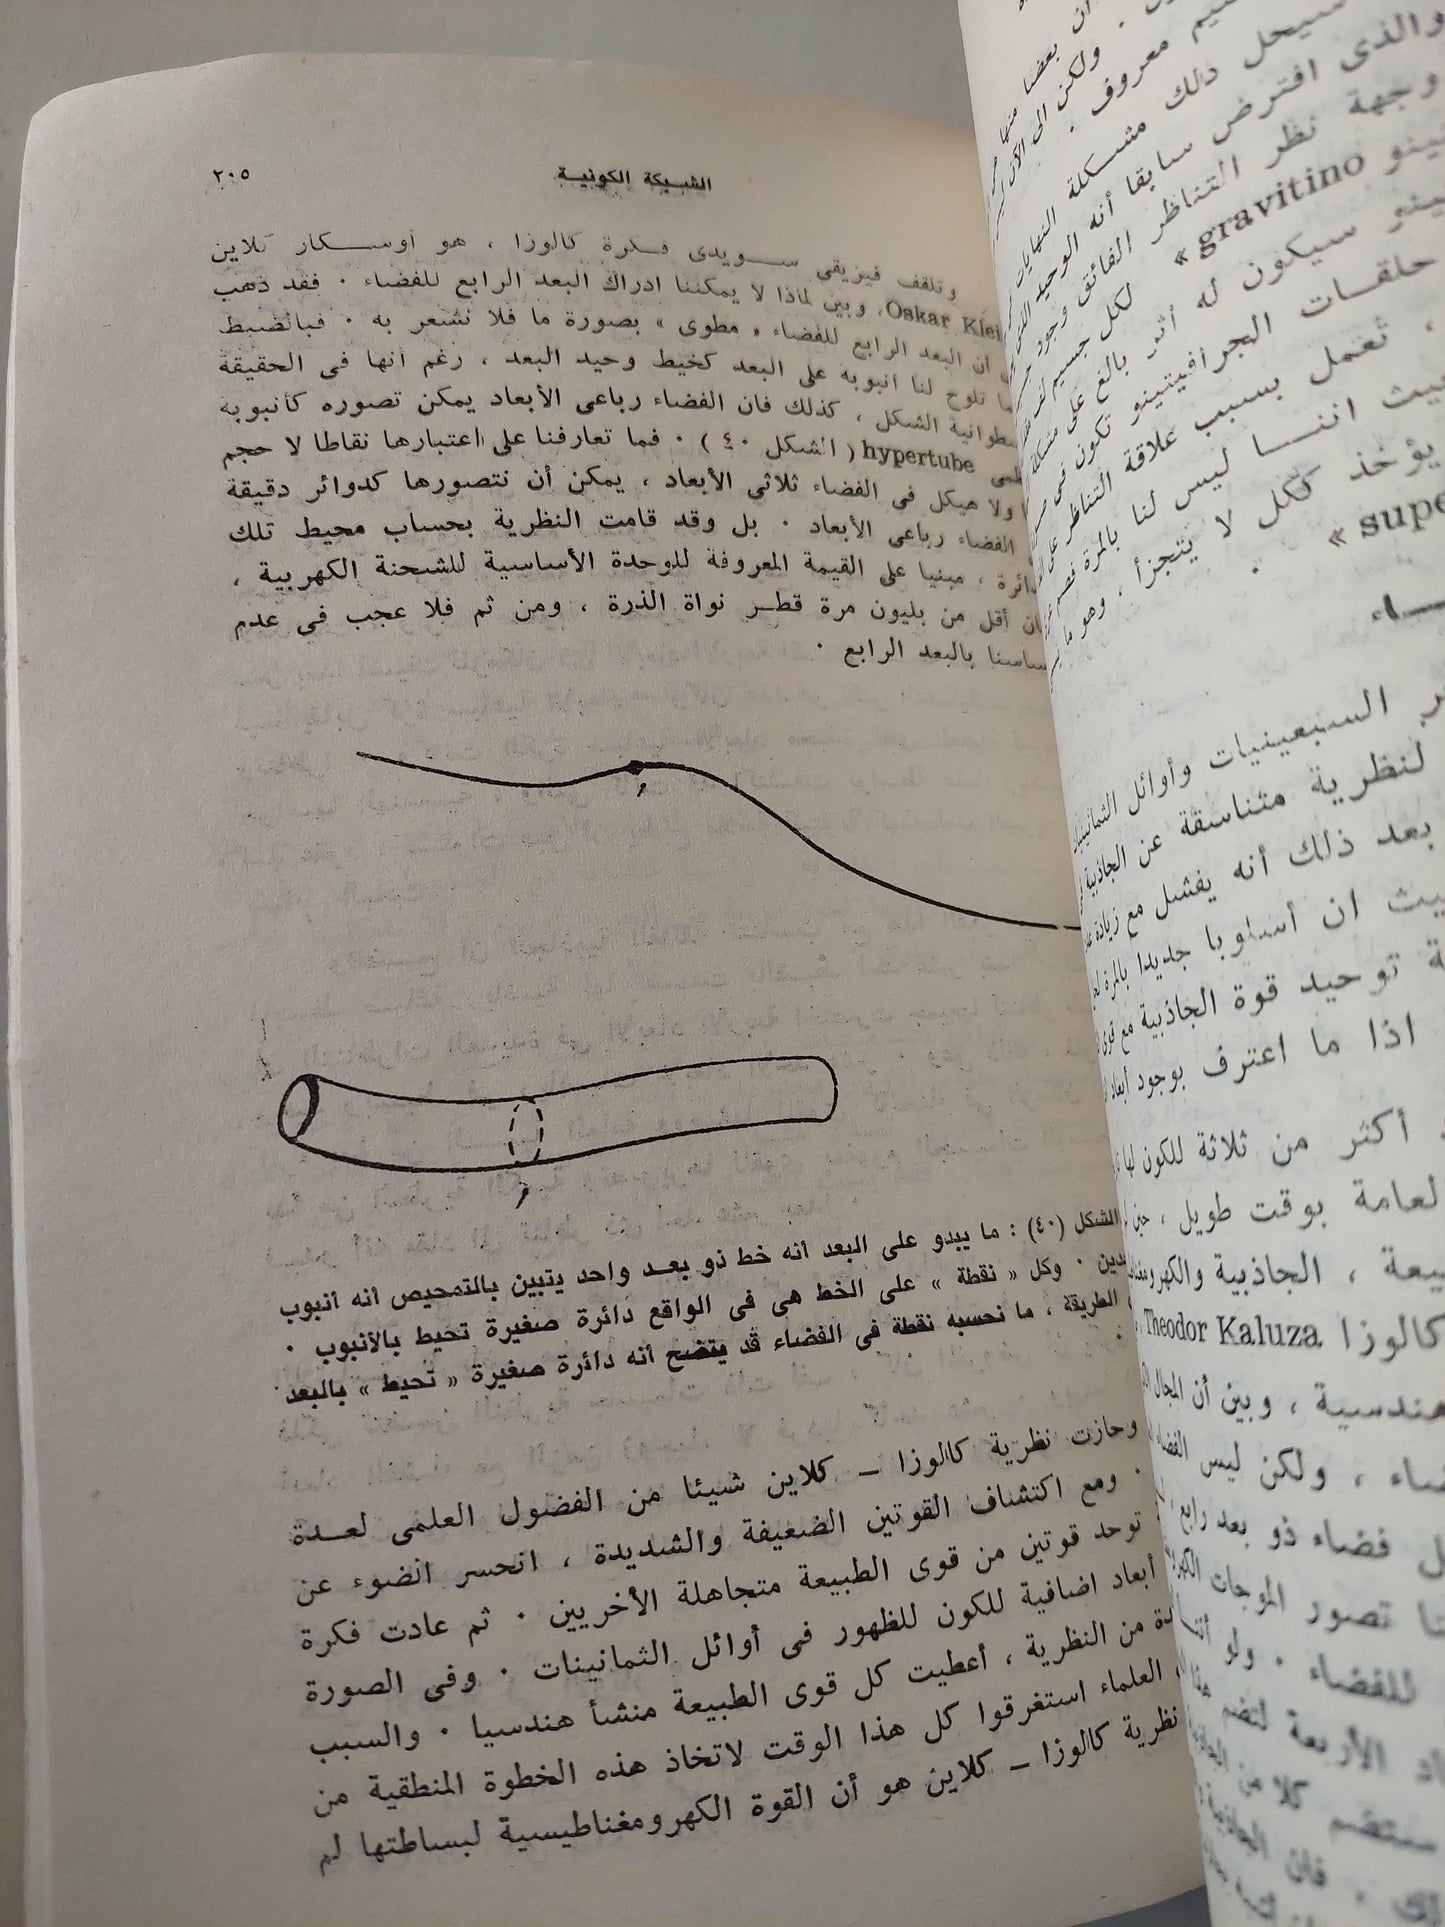 الشبكة الكونية
٢٠٥
وتلقف فيزيقى سويدى فكرة كالوزا ، هو أوسكار كلاين
Oskar Klei، وبين لماذا لا يمكننا ادراك البعد الرابع للفضاء ٠ فقد ذهب
أن البعد الرابع للفضاء « مطوى » بصورة ما فلا نشعر به ٠ فبالضبط
تلوح لنا أنبوبة على البعد كخيط وحيد البعد ، رغم أنها فى الحقيقة
سطوانية الشكل ، كذلك فان الفضاء رباعى الأبعاد يمكن تصوره كأنبوبة
ظمى hypertube ( الشكل ٤٠ ) ٠ فما تعارفنا على اعتبارها نقاطا لا حجم
ولا هيكل فى الفضاء ثلاثى الأبعاد ، يمكن أن نتصورها كدوائر دقيقة
الفضاء رباعى الأبعاد ٠ بل وقد قامت النظرية بحساب محيط تلك
ائرة ، مبنيا على القيمة المعروفة للوحدة الأساسية للشحنة الكهربية ،
ان أقل من بليون مرة قطر نواة الذرة ، ومن ثم فلا عجب فى عدم
ساسنا بالبعد الرابع ٠
م
م
الشكل (٤٠) : ما يبدو على البعد أنه خط ذو بعد واحد يتبين بالتمحيص أنه أنبوب
دين ٠ وكل « نقطة » على الخط هى فى الواقع دائرة صغيرة تحيط بالأنبوب ٠
الطريقة ، ما نحسبه نقطة فى الفضاء قد يتضح أنه دائرة صغيرة « تحيط » بالبعد
٠
وحازت نظرية كالوزا – كلاين شيئا من الفضول العلمى لعدة
٠ ومع اكتشاف القوتين الضعيفة والشديدة ، انحسر الضوء عن
توحد قوتين من قوى الطبيعة متجاهلة الأخريين ٠ ثم عادت فكرة
أبعاد اضافية للكون للظهور فى أوائل الثمانينات ٠ وفى الصورة
دة من النظرية ، أعطيت كل قوى الطبيعة منشأ هندسيا ٠ والسبب
العلماء استغرقوا كل هذا الوقت لاتخاذ هذه الخطوة المنطقية من
نظرية كالوزا – كلاين هو أن القوة الكهرومغناطيسية لبساطتها لم
أن بعضنا منها
يم معروف ٠ ولكن الى الآن
سيحل ذلك مشكلة النهايات
والذى افترض سابقا أنه الوحيد
وجهة نظر التناظر الفائق وجود
ينو gravitino »
ينو سيكون له أثر بالغ على مشكلة
حلقات الجرافيتينو تكون فى
، تعمل بسبب علاقة التناظر
يث اننا ليس لنا بالمرة فصم
يؤخذ ككل لا يتجزأ ، وهو ما
supe »
ـاء
ر السبعينيات وأوائل الثمانينيات
لنظرية متناسقة عن الجاذبية
بعد ذلك أنه يفشل مع زيادة
يث ان أسلوبا جديدا بالمرة
ة توحيد قوة الجاذبية مع قوى
اذا ما اعترف بوجود أبعاد
أكثر من ثلاثة للكون لها
لعامة بوقت طويل ، حين
يعة ، الجاذبية والكهرومغنا
كالوزا Theodor Kaluza
هندسية ، وبين أن المجال
ضاء ، ولكن ليس الفضاء
ل فضاء ذو بعد رابع
نا تصور الموجات
للفضاء ٠ ولو
اد الأربعة لتضم
ستضم كلا من
ك ٠ فان